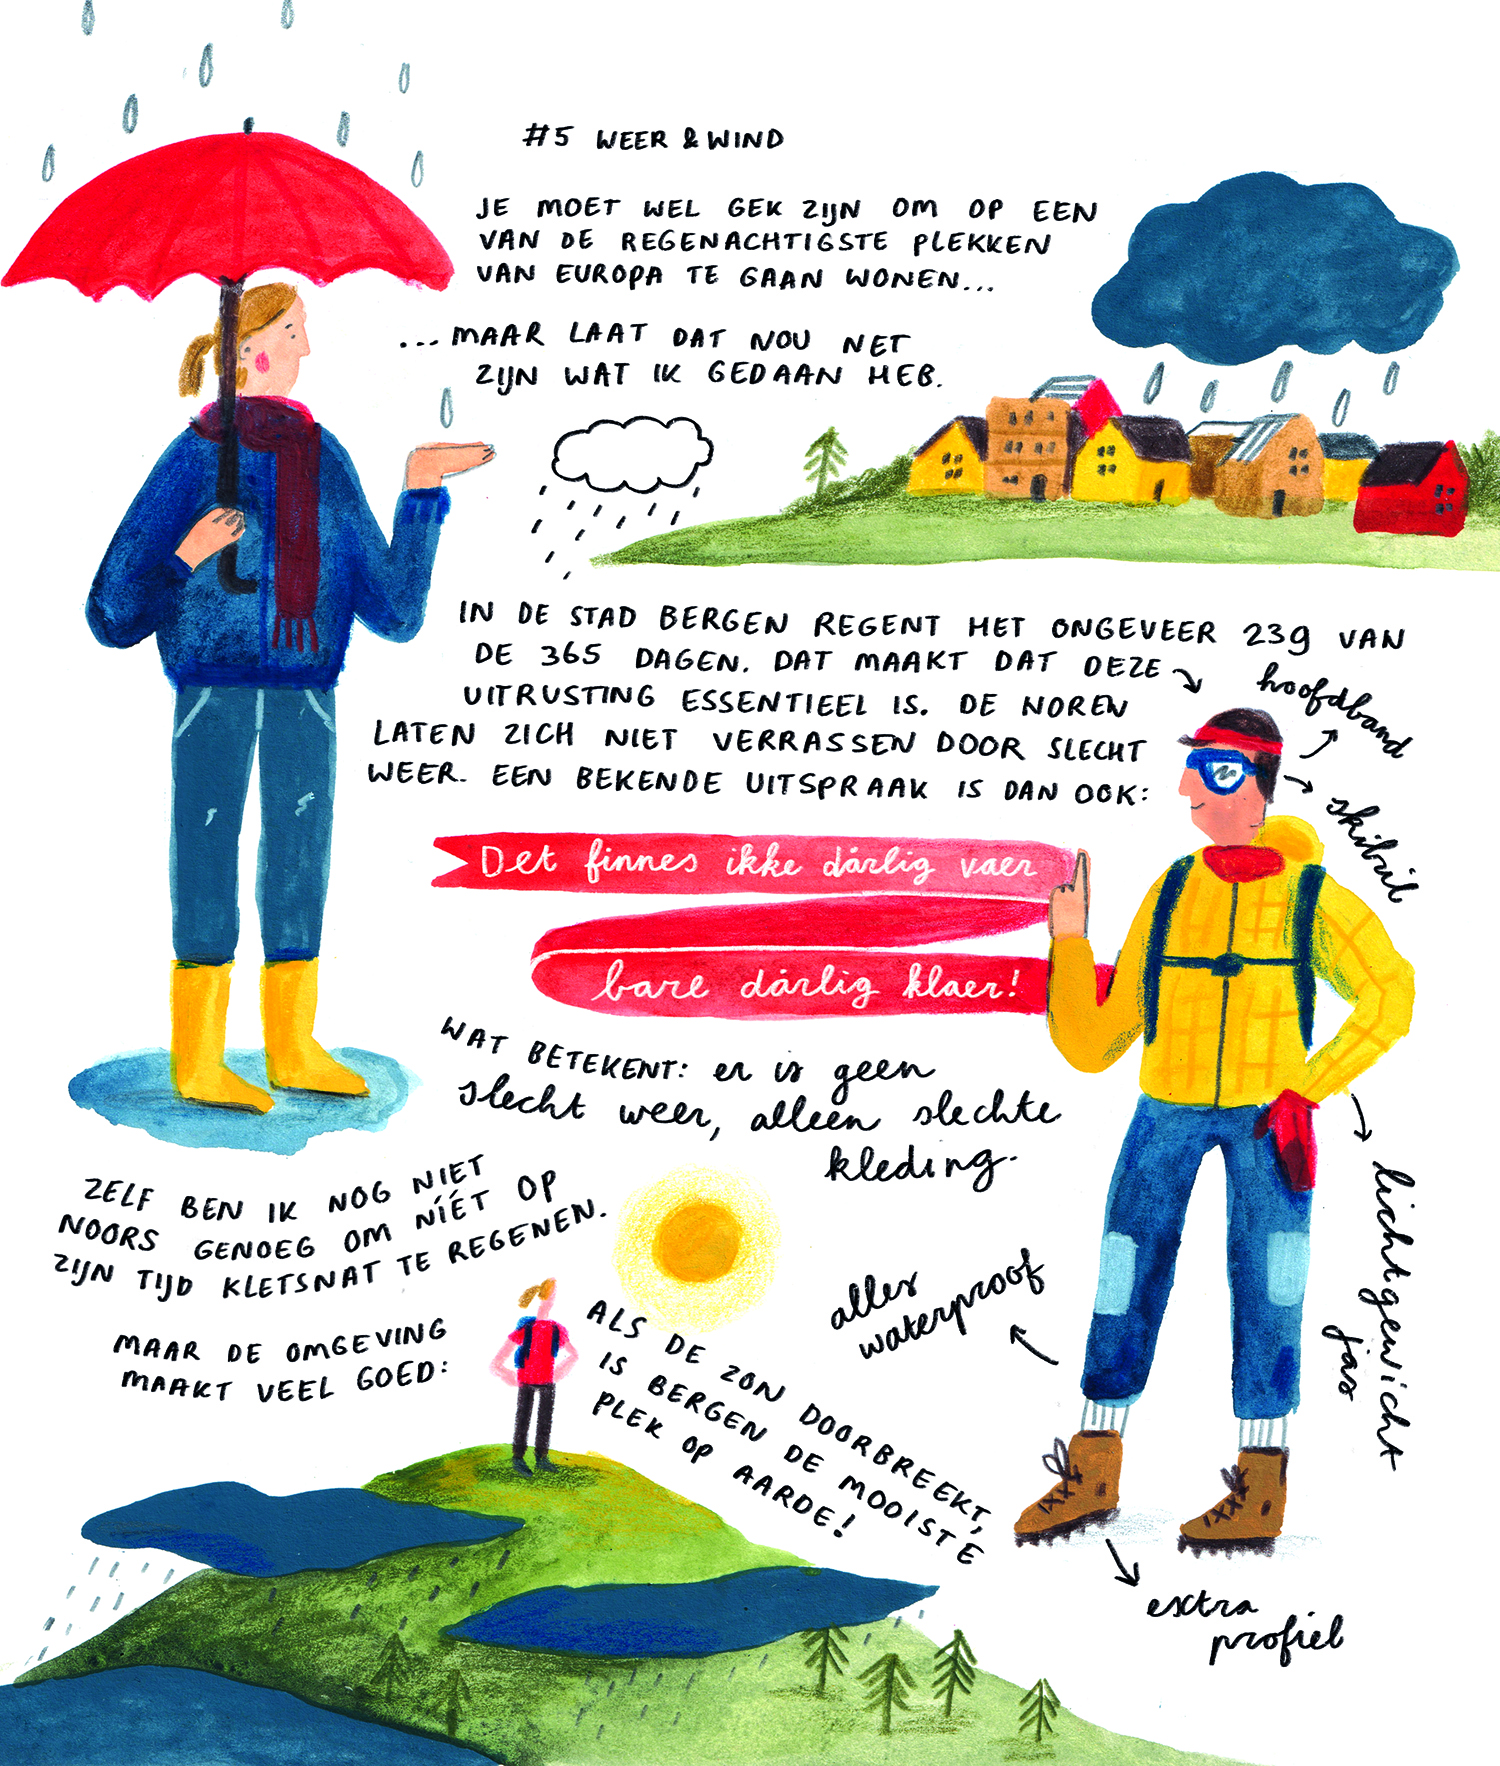 #5 WEER & WIND
JE MOET WEL GEK ZIJN OM OP EEN
VAN DE REGENACHTIGSTE PLEKKEN
VAN EUROPA TE GAAN WONEN...
...MAAR LAAT DAT NOU NET
ZIJN WAT IK GEDAAN HEB.
IN DE STAD BERGEN REGENT HET ONGEVEER 239 VAN
DE 365 DAGEN. DAT MAAKT DAT DEZE
UITRUSTING ESSENTIEEL IS. DE NOREN
LATEN ZICH NIET VERRASSEN DOOR SLECHT
WEER. EEN BEKENDE UITSPRAAK IS DAN OOK:
hoofdband
skibril
Det finnes ikke dårlig vaer
bare dårlig klaer!
WAT BETEKENT: er is geen
slecht weer, alleen slechte
kleding.
lichtgewicht
jas
alles
waterproof
extra
profiel
ZELF BEN IK NOG NIET
NOORS GENOEG OM NÍÉT OP
ZIJN TIJD KLETSNAT TE REGENEN.
MAAR DE OMGEVING
MAAKT VEEL GOED:
ALS DE ZON DOORBREEKT,
IS BERGEN DE MOOISTE
PLEK OP AARDE!